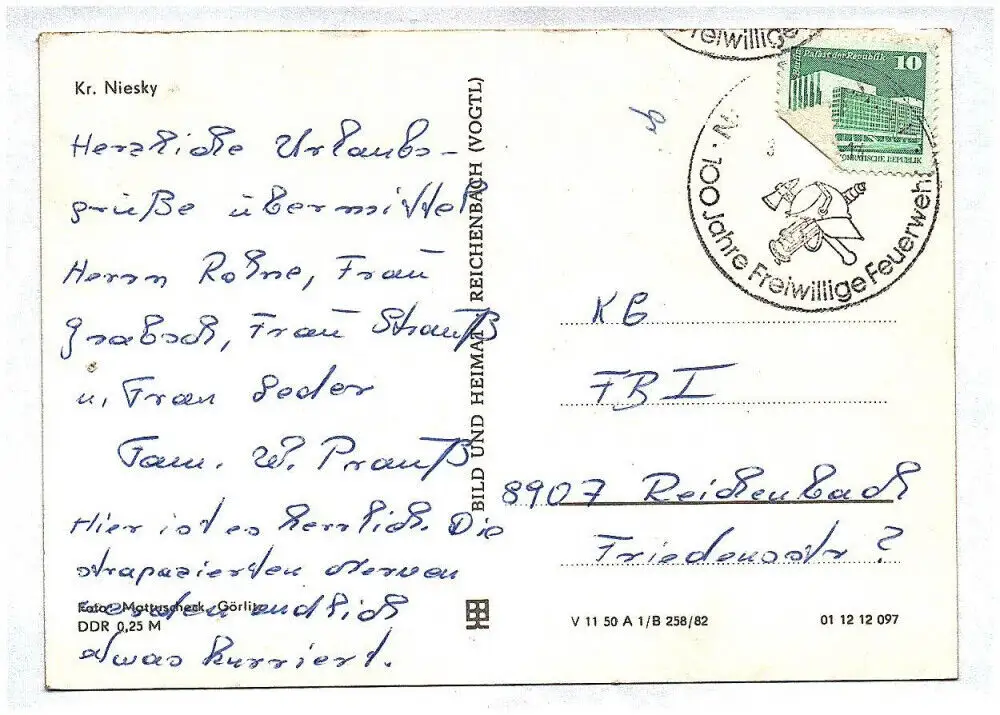 Kr. Niesky
Herzliche Urlaubs-
grüße übermittel
Herrn Rohne, Frau
Grabsch, Frau Strauß
u. Frau Seder
Fam. W. Prauß
Hier ist es herrlich. Die
strapazierten Nerven
werden endlich
etwas kurriert.
Foto: Mattuscheck, Görlitz
DDR 0,25 M
BILD UND HEIMAT REICHENBACH (VOGTL)
Freiwillige
Palast der Republik
10
DEMOKRATISCHE REPUBLIK
100 Jahre Freiwillige Feuerwehr
KG
FBI
8907 Reichenbach
Friedensstr ?
V 11 50 A 1/B 258/82
01 12 12 097